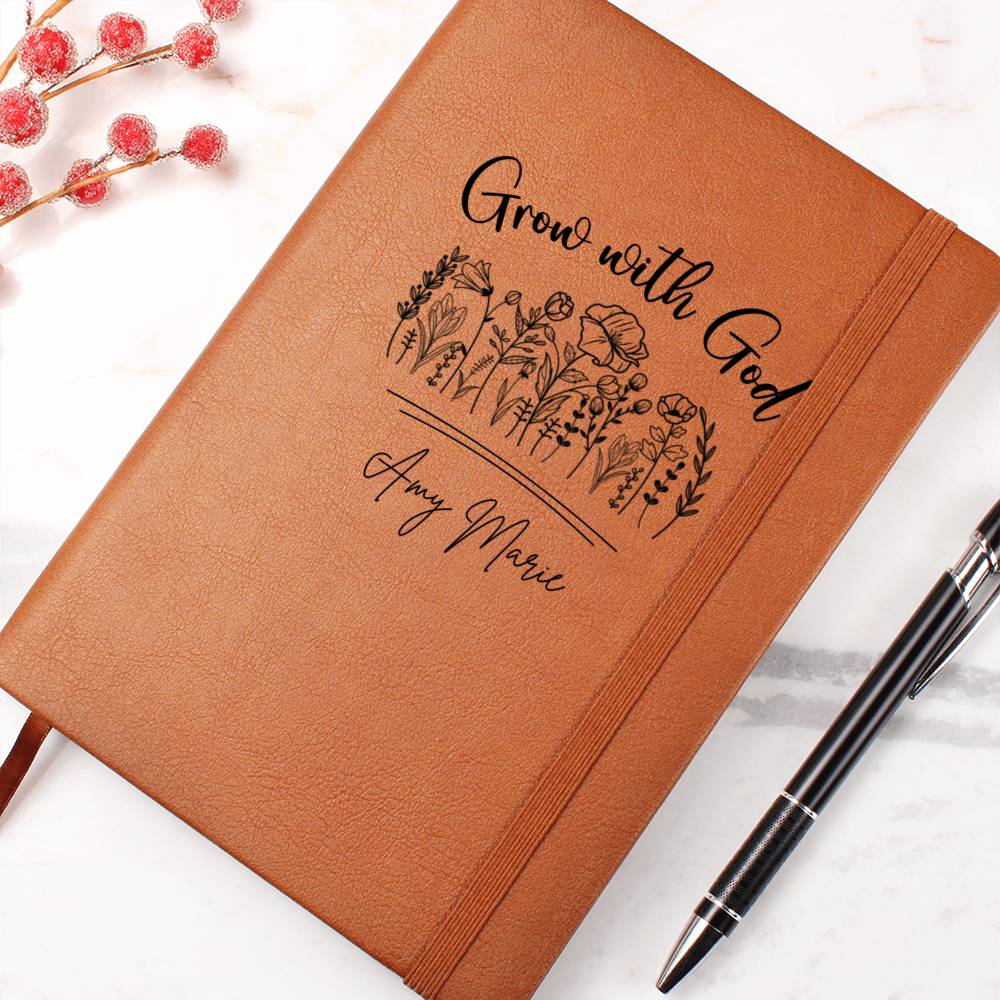 Grow with God
Amy Marie